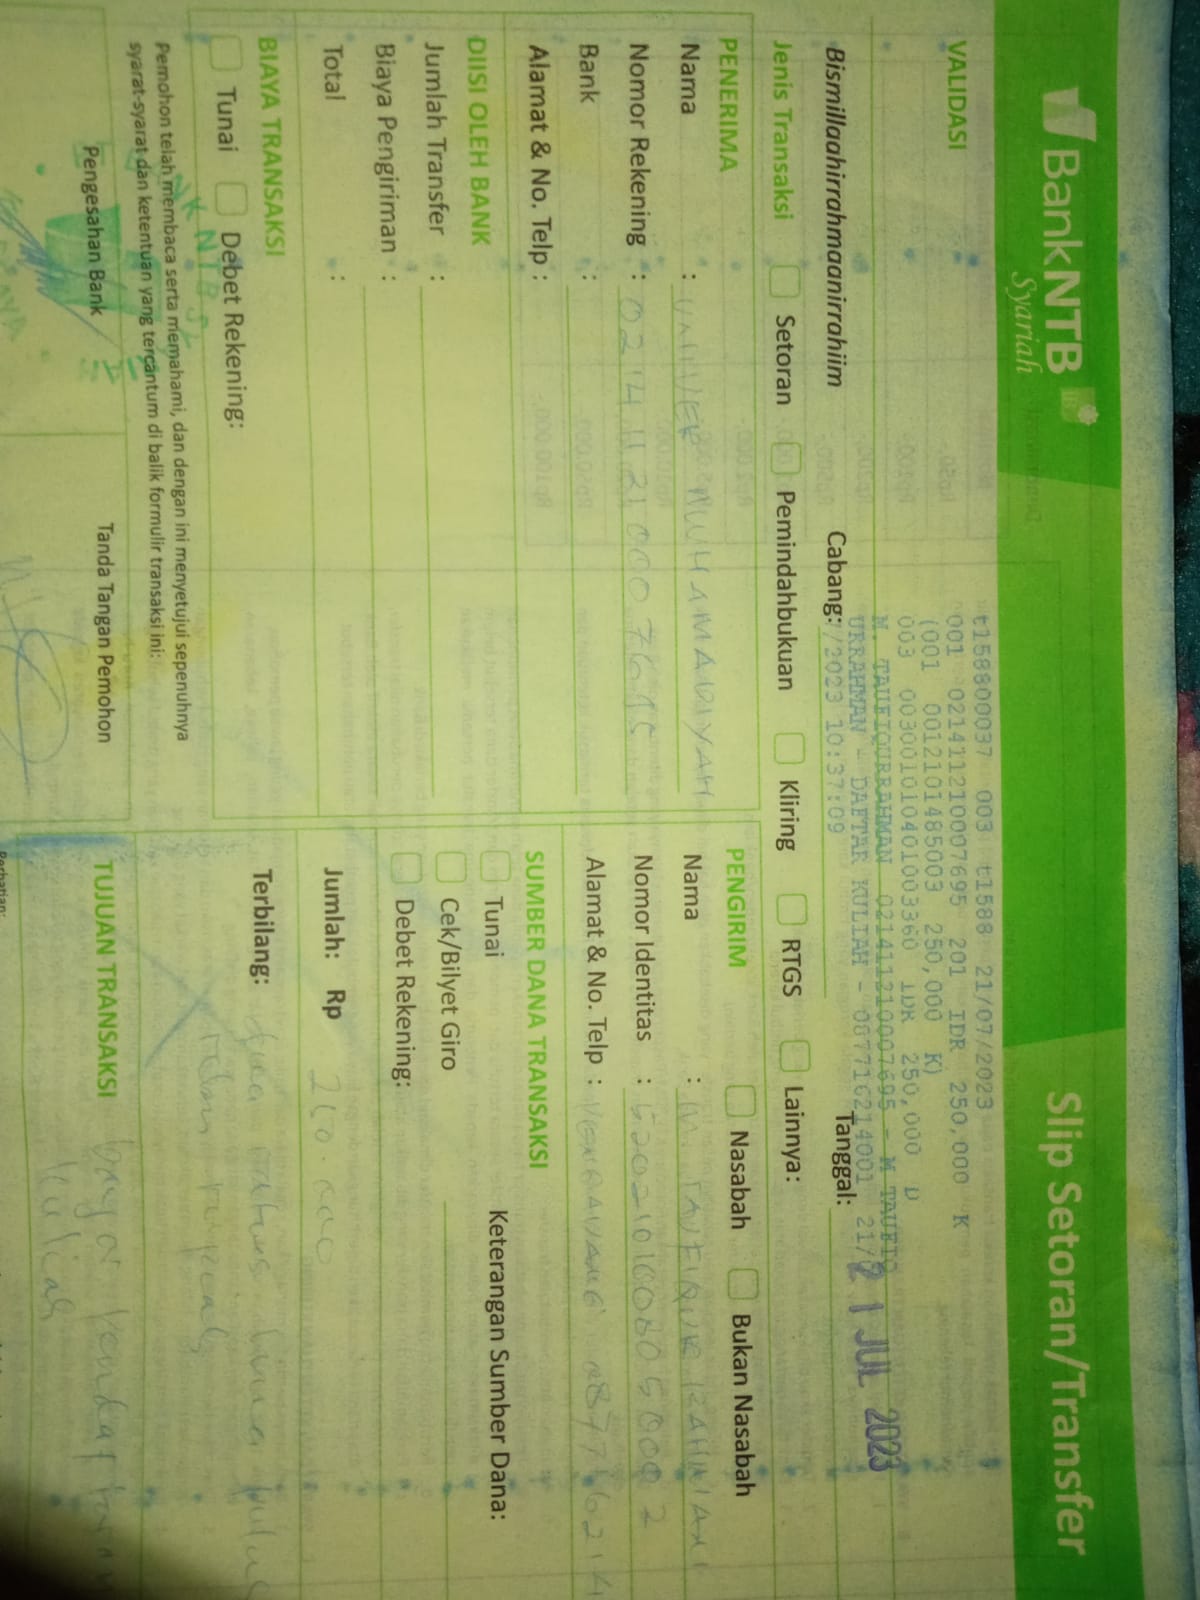 BankNTB
Syariah
Slip Setoran/Transfer
VALIDASI
t158800037 003 t1588 21/07/2023
001 0214112100007695 201 IDR 250,000 K
(001 0012101485003 250,000 K)
003 003001010401003360 IDR 250,000 D
M. TAUFIQURRAHMAN 0214112100007695 - M TAUFIQ
URRAHMAN - DAFTAR KULIAH - 087716214001 21/
/2023 10:37:09
Bismillaahirrahmaanirrahiim
Cabang:
Tanggal:
21 JUL 2023
Jenis Transaksi
Setoran
Pemindahbukuan
Kliring
RTGS
Lainnya:
PENERIMA
Nama : UNIVER MUHAMADIYAH
Nomor Rekening : 0214112100007695
Bank :
Alamat & No. Telp :
PENGIRIM
Nasabah
Bukan Nasabah
Nama : M. TAUFIQURRAHMAN
Nomor Identitas :
Alamat & No. Telp :
DIISI OLEH BANK
Jumlah Transfer :
Biaya Pengiriman :
Total :
SUMBER DANA TRANSAKSI
Tunai
Cek/Bilyet Giro
Debet Rekening:
Keterangan Sumber Dana:
BIAYA TRANSAKSI
Tunai
Debet Rekening:
Jumlah: Rp 250.000
Terbilang: dua ratus lima puluh
ribu rupiah
Pemohon telah membaca serta memahami, dan dengan ini menyetujui sepenuhnya
syarat-syarat dan ketentuan yang tercantum di balik formulir transaksi ini:
Pengesahan Bank
Tanda Tangan Pemohon
TUJUAN TRANSAKSI
bayar pendaftaran
kuliah